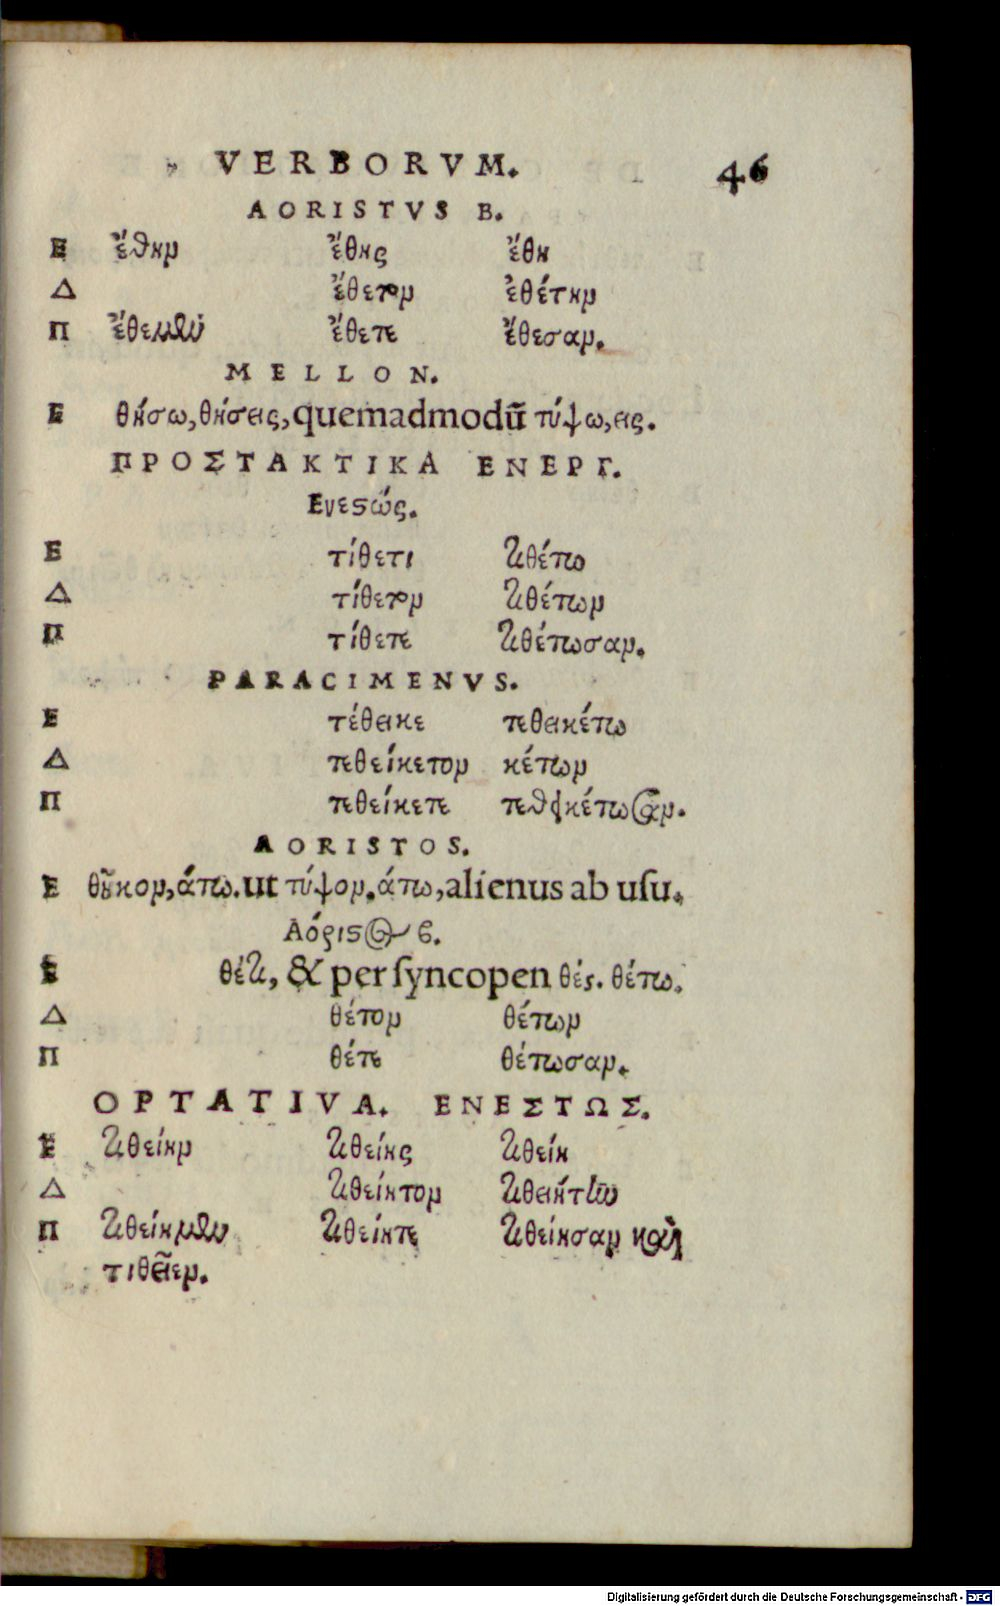 VERBORVM. 46
AORISTVS B.
Ε ἔθην ἔθης ἔθη
Δ ἔθετον ἐθέτην
Π ἔθεμεν ἔθετε ἔθεσαν.
MELLON.
Ε θήσω, θήσεις, quemadmodũ τύψω, εις.
ΠΡΟΣΤΑΚΤΙΚΑ ΕΝΕΡΓ.
Ενεστώς.
Ε τίθετι τιθέτω
Δ τίθετον τιθέτων
Π τίθετε τιθέτωσαν.
PARACIMENVS.
Ε τέθεικε τεθεικέτω
Δ τεθείκετον κέτων
Π τεθείκετε τεθεικέτωσαν.
AORISTOS.
Ε θῆκον, άτω. ut τύψον. άτω, alienus ab uſu.
Αόριστος β.
Ε θέτι, & per ſyncopen θές. θέτω.
Δ θέτον θέτων
Π θέτε θέτωσαν.
OPTATIVA. ΕΝΕΣΤΩΣ.
Ε τιθείην τιθείης τιθείη
Δ τιθείητον τιθειήτην
Π τιθείημεν τιθείητε τιθείησαν καὶ
τιθεῖεν.
Digitalisierung gefördert durch die Deutsche Forschungsgemeinschaft - DFG